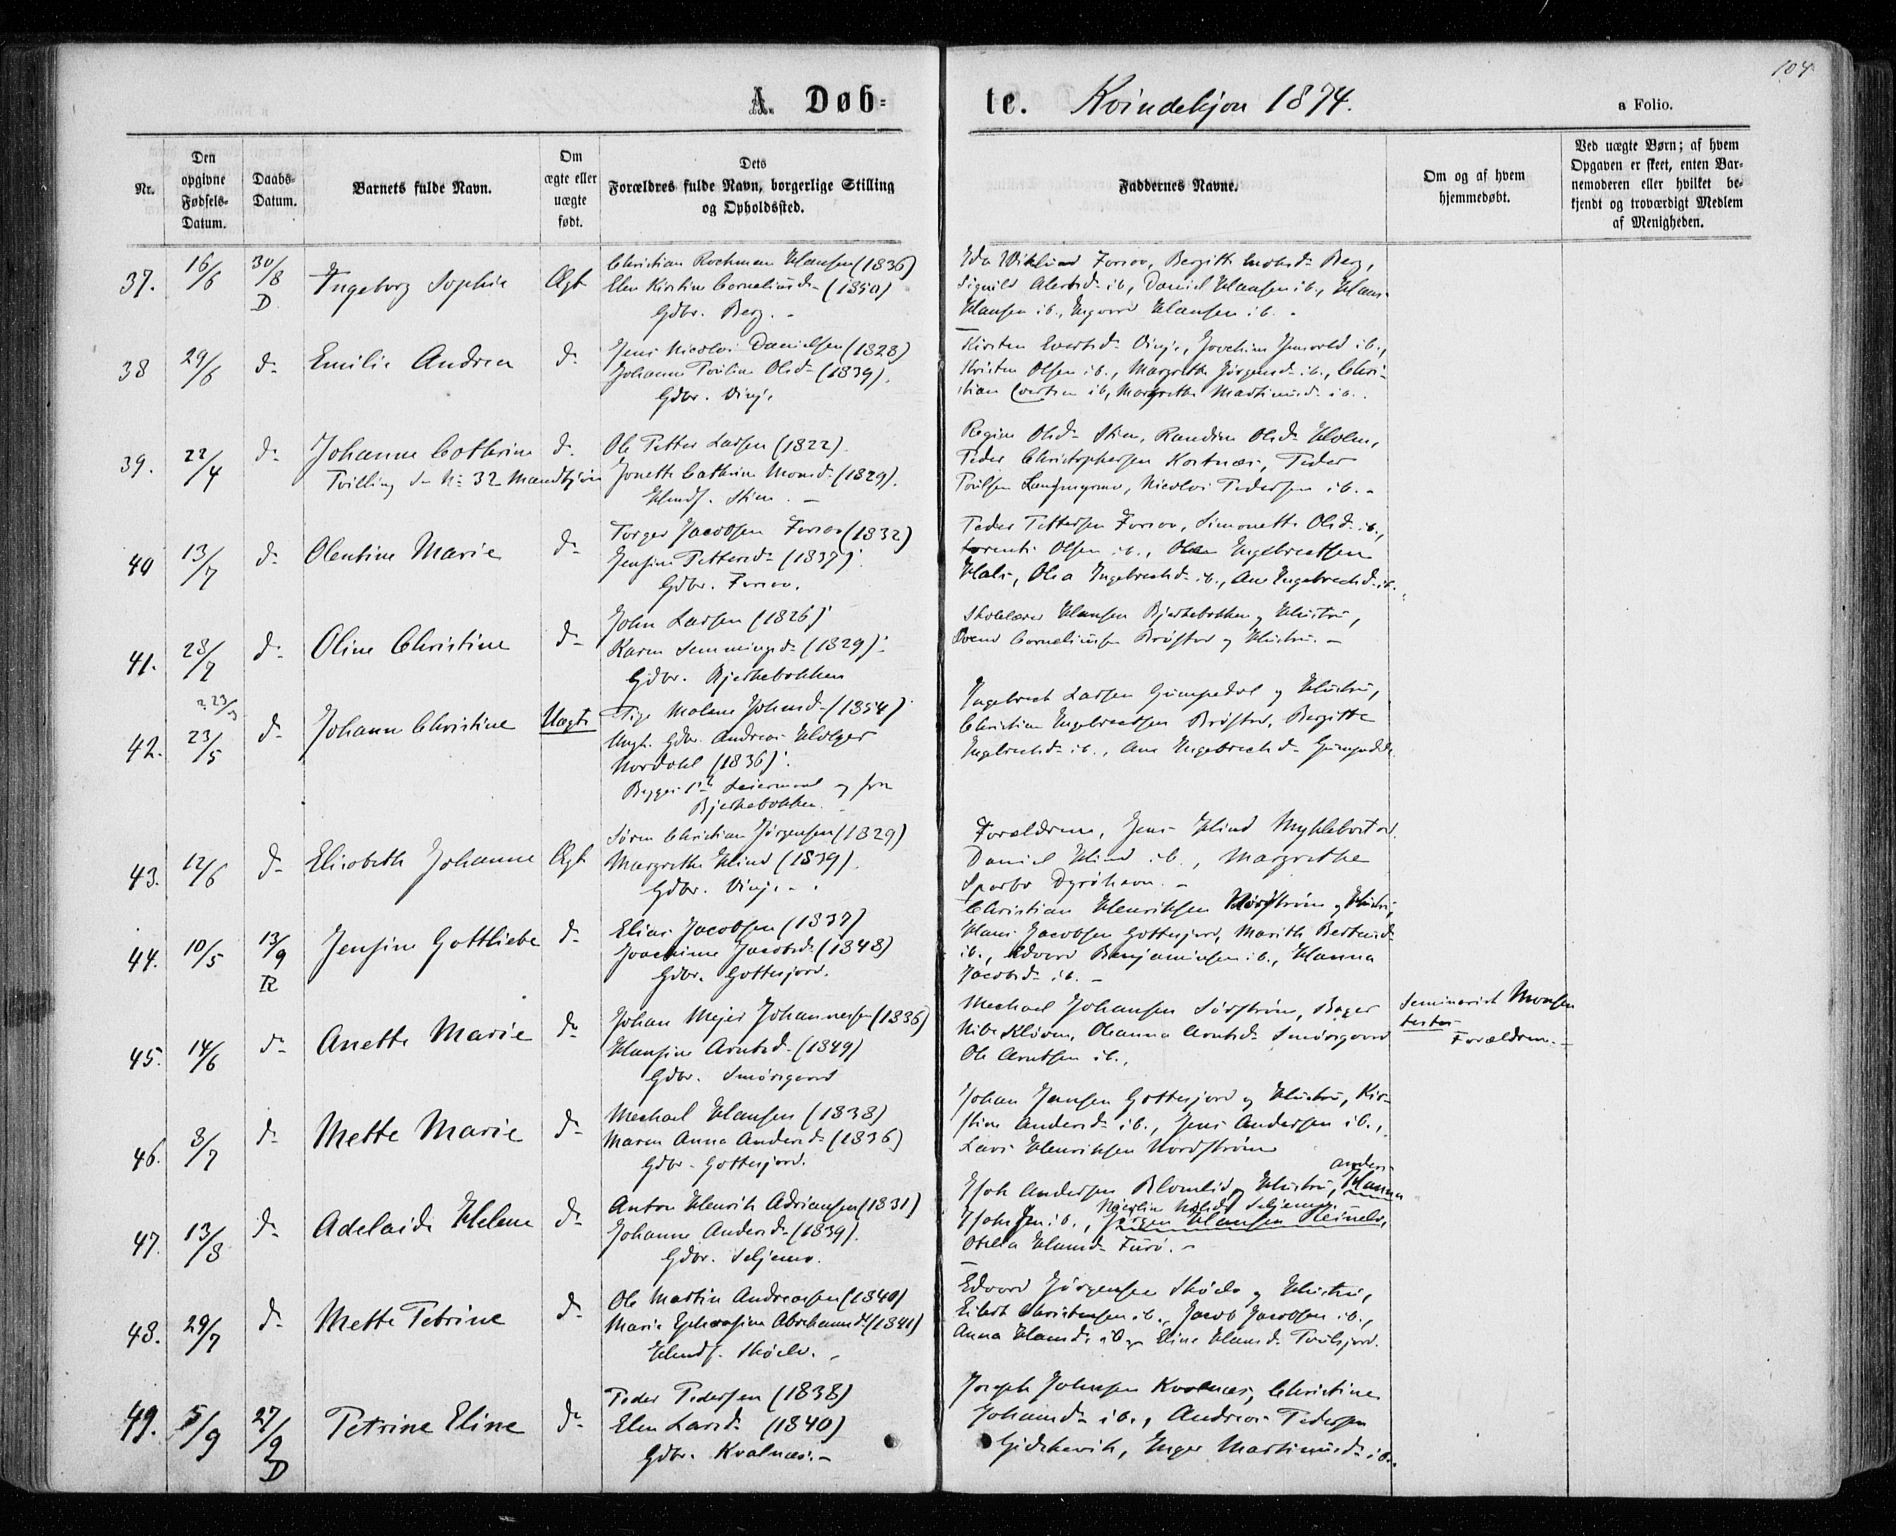 104
A. Døbte. Kvindekjøn 1874.
a Folio.
Nr.
Den opgivne Fødsels-Datum.
Daabs-Datum.
Barnets fulde Navn.
Om ægte eller uægte født.
Dets Forældres fulde Navn, borgerlige Stilling og Opholdssted.
Faddernes Navne.
Om og af hvem hjemmedøbt.
Ved uægte Børn; af hvem Opgaven er skeet, enten Barnemoderen eller hvilket bekjendt og troværdigt Medlem af Menigheden.
37. 16/6 30/8 D. Ingeborg Sophie Ægt
Christian Rochman Hansen (1836)
Elen Kirstine Corneliusd. (1850)
Gdbr. Berg.
Berg,
Daniel Hansen ib., Hans
Hansen ib., Ingvard Hansen ib.
38 29/6 d. Emilie Andrea d.
Jens Nicolai Danielsen (1828)
Johanne Olsd. (1839).
Gdbr. Vinje
Kristen Olsen ib., Margrethe Jørgensd. ib., Chri-
stian ib, Margrethe Martinusd. ib.
39. 22/4 d. Johanne Cathrine d.
Tvilling d. N: 32 Mandkjøn
Ole Petter Larsen (1822).
Jonette Cathrine Monsd. (1829).
Husmd. Stien.
Regine Olsd. Stien, Randine Olsd. Holm,
Peder Christophersen Kastnæs, Peder
Nicolai Pedersen ib.
40 13/7 d. Olentine Marie d.
Torger Jacobsen (1832)
Jensine Pettersd. (1837).
Gdbr.
Peder Pettersen Simonette Olsd. ib.,
Olsen ib., Engebrectsen
Hals, Olea Ingebrectsd. ib., Ane Engebrectsd. ib.
41. 28/7 d. Oline Christine d.
John Larsen (1826)
Karen Lemmingsd. (1829).
Gdbr. Bjerkebakken
Skolelærer Hansen Bjerkebakken og Hustru,
Svend Corneliussen Brøstad og Hustru.
42. 23/5 d. Johanne Christine Uægte
Pige Malene Johnsd. (1854)
Ungk. Gdbr. Andreas Holger
Nordahl (1836).
Begges 1ste Leiermaal og fra
Bjerkebakken.
Ingebrect Larsen Gumpedal og Hustru,
Christian Engebrectsen Brøstad, Bergitte
Engebrectsd. ib., Ane Engebrectsd. Gumpedal
43. 12/6 d. Elisabeth Johanne Ægt
Søren Christian Jørgensen (1829)
Margrethe Hind (1839).
Gdbr. Vinje.
Forældrene, Jens Hind Myklebostad.
Daniel Hind ib., Margrethe
Sparbo Dyrøhavn.
44. 10/5 13/9 R Jensine Gottliebe d.
Elias Jacobsen (1837)
Joachime Jacobsd. (1848)
Gdbr. Gottesjord.
Christian Henriksen Nordstrøm og Hustru,
Hans Jacobsen Gottesjord, Marith Berntsd.
ib., Edvard Benjaminsen ib., Hanna
Jacobsd. ib.
45. 14/6 d. Anette Marie d.
Johan Mejer Johannesen (1836)
Hansine Arntsd. (1849)
Gdbr. Smørsgaard
Mechael Johansen Sørstrøm,
Oleanna Arntsd. Smørsgaard
Ole Arntsen ib.
Seminarist Monsen
testes
Forældrene.
46. 3/7 d. Mette Marie d.
Mechael Hansen (1838)
Maren Anna Andersd. (1836)
Gdbr. Gottesjord.
Johan Jensen Gottesjord og Hustru, Kir-
stine Andersd. ib., Jens Andersen ib.,
Lars Henriksen Nordstrøm
47. 13/8 d. Adelaide Helene d.
Anton Henrik Adriansen (1831)
Johanne Andersd. (1839).
Gdbr. Seljemo.
Andersen Blomlid og Hustru, Hanna
ib., Jørgen Hansen
Otelia Hansd. Furø.
48. 29/7 d. Mette Petrine d.
Ole Martin Andreassen (1840)
Marie Ephrosine Abrahamsd. (1841)
Husmd. Skøelv.
Edvard Jørgensen Skøelv og Hustru,
Eilert Christensen ib., Jacob Jacobsen ib.,
Anna Hansd. ib. og Eline Hansd.
49. 5/9 27/9 D Petrine Eline d.
Peder Pedersen (1838)
Elen Larsd. (1840)
Gdbr. Kvalnæs.
Joseph Johnsen Kvalnæs, Christine
Johansd. ib., Andreas Pedersen
Inger Martinusd. ib.